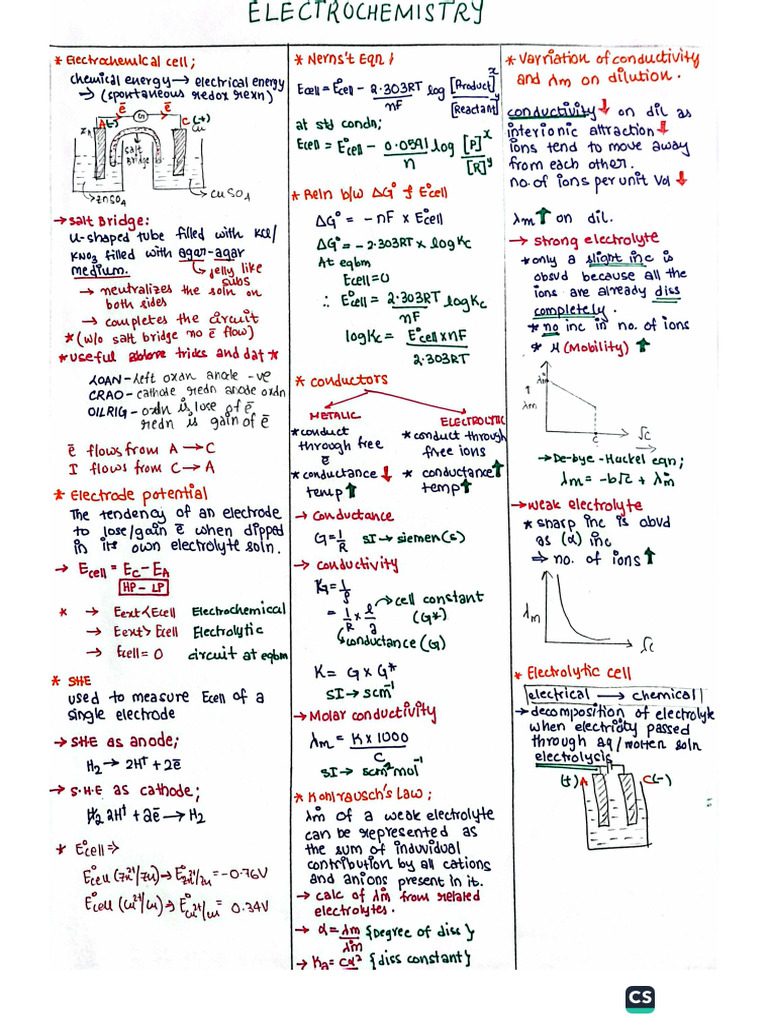 ELECTROCHEMISTRY
* Electrochemical cell;
chemical energy → electrical energy
→ (spontaneous redox rexn)
ē ē
A(-) C(+)
Zn Cu
salt
Bridge
ZnSO4 CuSO4
→ Salt Bridge:
U-shaped tube filled with KCl/
KNO3 filled with agar-agar
medium. jelly like
subs
→ neutralizes the soln on
both sides
→ completes the circuit
*(w/o salt bridge no ē flow)
*useful above tricks and dat*
LOAN - left oxdn anode -ve
CRAO - cathode redn anode oxdn
OILRIG - oxdn is lose of ē
redn is gain of ē
ē flows from A → C
I flows from C → A
* Electrode potential
The tendency of an electrode
to lose/gain ē when dipped
in its own electrolyte soln.
→ Ecell = EC - EA
HP - LP
* → Eext<Ecell Electrochemical
→ Eext>Ecell Electrolytic
→ Ecell = 0 circuit at eqbm
* SHE
used to measure Ecell of a
single electrode
→ SHE as anode;
H2 → 2H+ + 2ē
→ S.H.E as cathode;
2H+ + 2ē → H2
* E°cell ⇒
E°cell (Zn2+/Zn) → E°Zn2+/Zn = -0.76V
E°cell (Cu2+/Cu) → E°Cu2+/Cu = 0.34V
* Nernst Eqn ;
Ecell = E°cell - 2.303RT/nF log [Product]x/[Reactant]y
at std condn;
Ecell = E°cell - 0.0591/n log [P]x/[R]y
* Reln b/w ΔG° & E°cell
ΔG° = -nF x E°cell
ΔG° = -2.303RT x log Kc
At eqbm
Ecell = 0
∴ E°cell = 2.303RT/nF log Kc
log Kc = E°cell x nF/2.303RT
* Conductors
METALIC ELECTROLYTIC
*conduct * conduct through
through free free ions
ē
*conductance ↓ * conductance ↑
temp ↑ temp ↑
→ Conductance
G = 1/R SI → siemen(s)
→ conductivity
K = 1/ρ
= 1/R x l/a cell constant
(G*)
conductance (G)
K = G x G*
SI → scm-1
→ Molar conductivity
λm = K x 1000/C
SI → scm2 mol-1
* Kohlrausch's Law ;
λ°m of a weak electrolyte
can be represented as
the sum of induvidual
contribution by all cations
and anions present in it.
→ calc of λ°m from related
electrolytes.
→ α = λm/λ°m {Degree of diss}
→ Ka = Cα2 {diss constant}
* Varriation of conductivity
and λm on dilution.
conductivity ↓ on dil as
interionic attraction ↓
ions tend to move away
from each other.
no. of ions per unit Vol ↓
λm ↑ on dil.
→ strong electrolyte
*only a slight inc is
obsvd because all the
ions are already diss
completely.
*no inc in no. of ions
* μ (Mobility) ↑
λ°m
↑
λm
C √C
→ De-bye - Huckel eqn;
λm = -b√C + λ°m
→ weak electrolyte
* sharp inc is obvd
as (α) inc
⇒ no. of ions ↑
λm
√C
* Electrolytic cell
electrical → chemical
→ decomposition of electrolyte
when electricity passed
through aq/molten soln
electrolysis
(+) A C(-)
CS